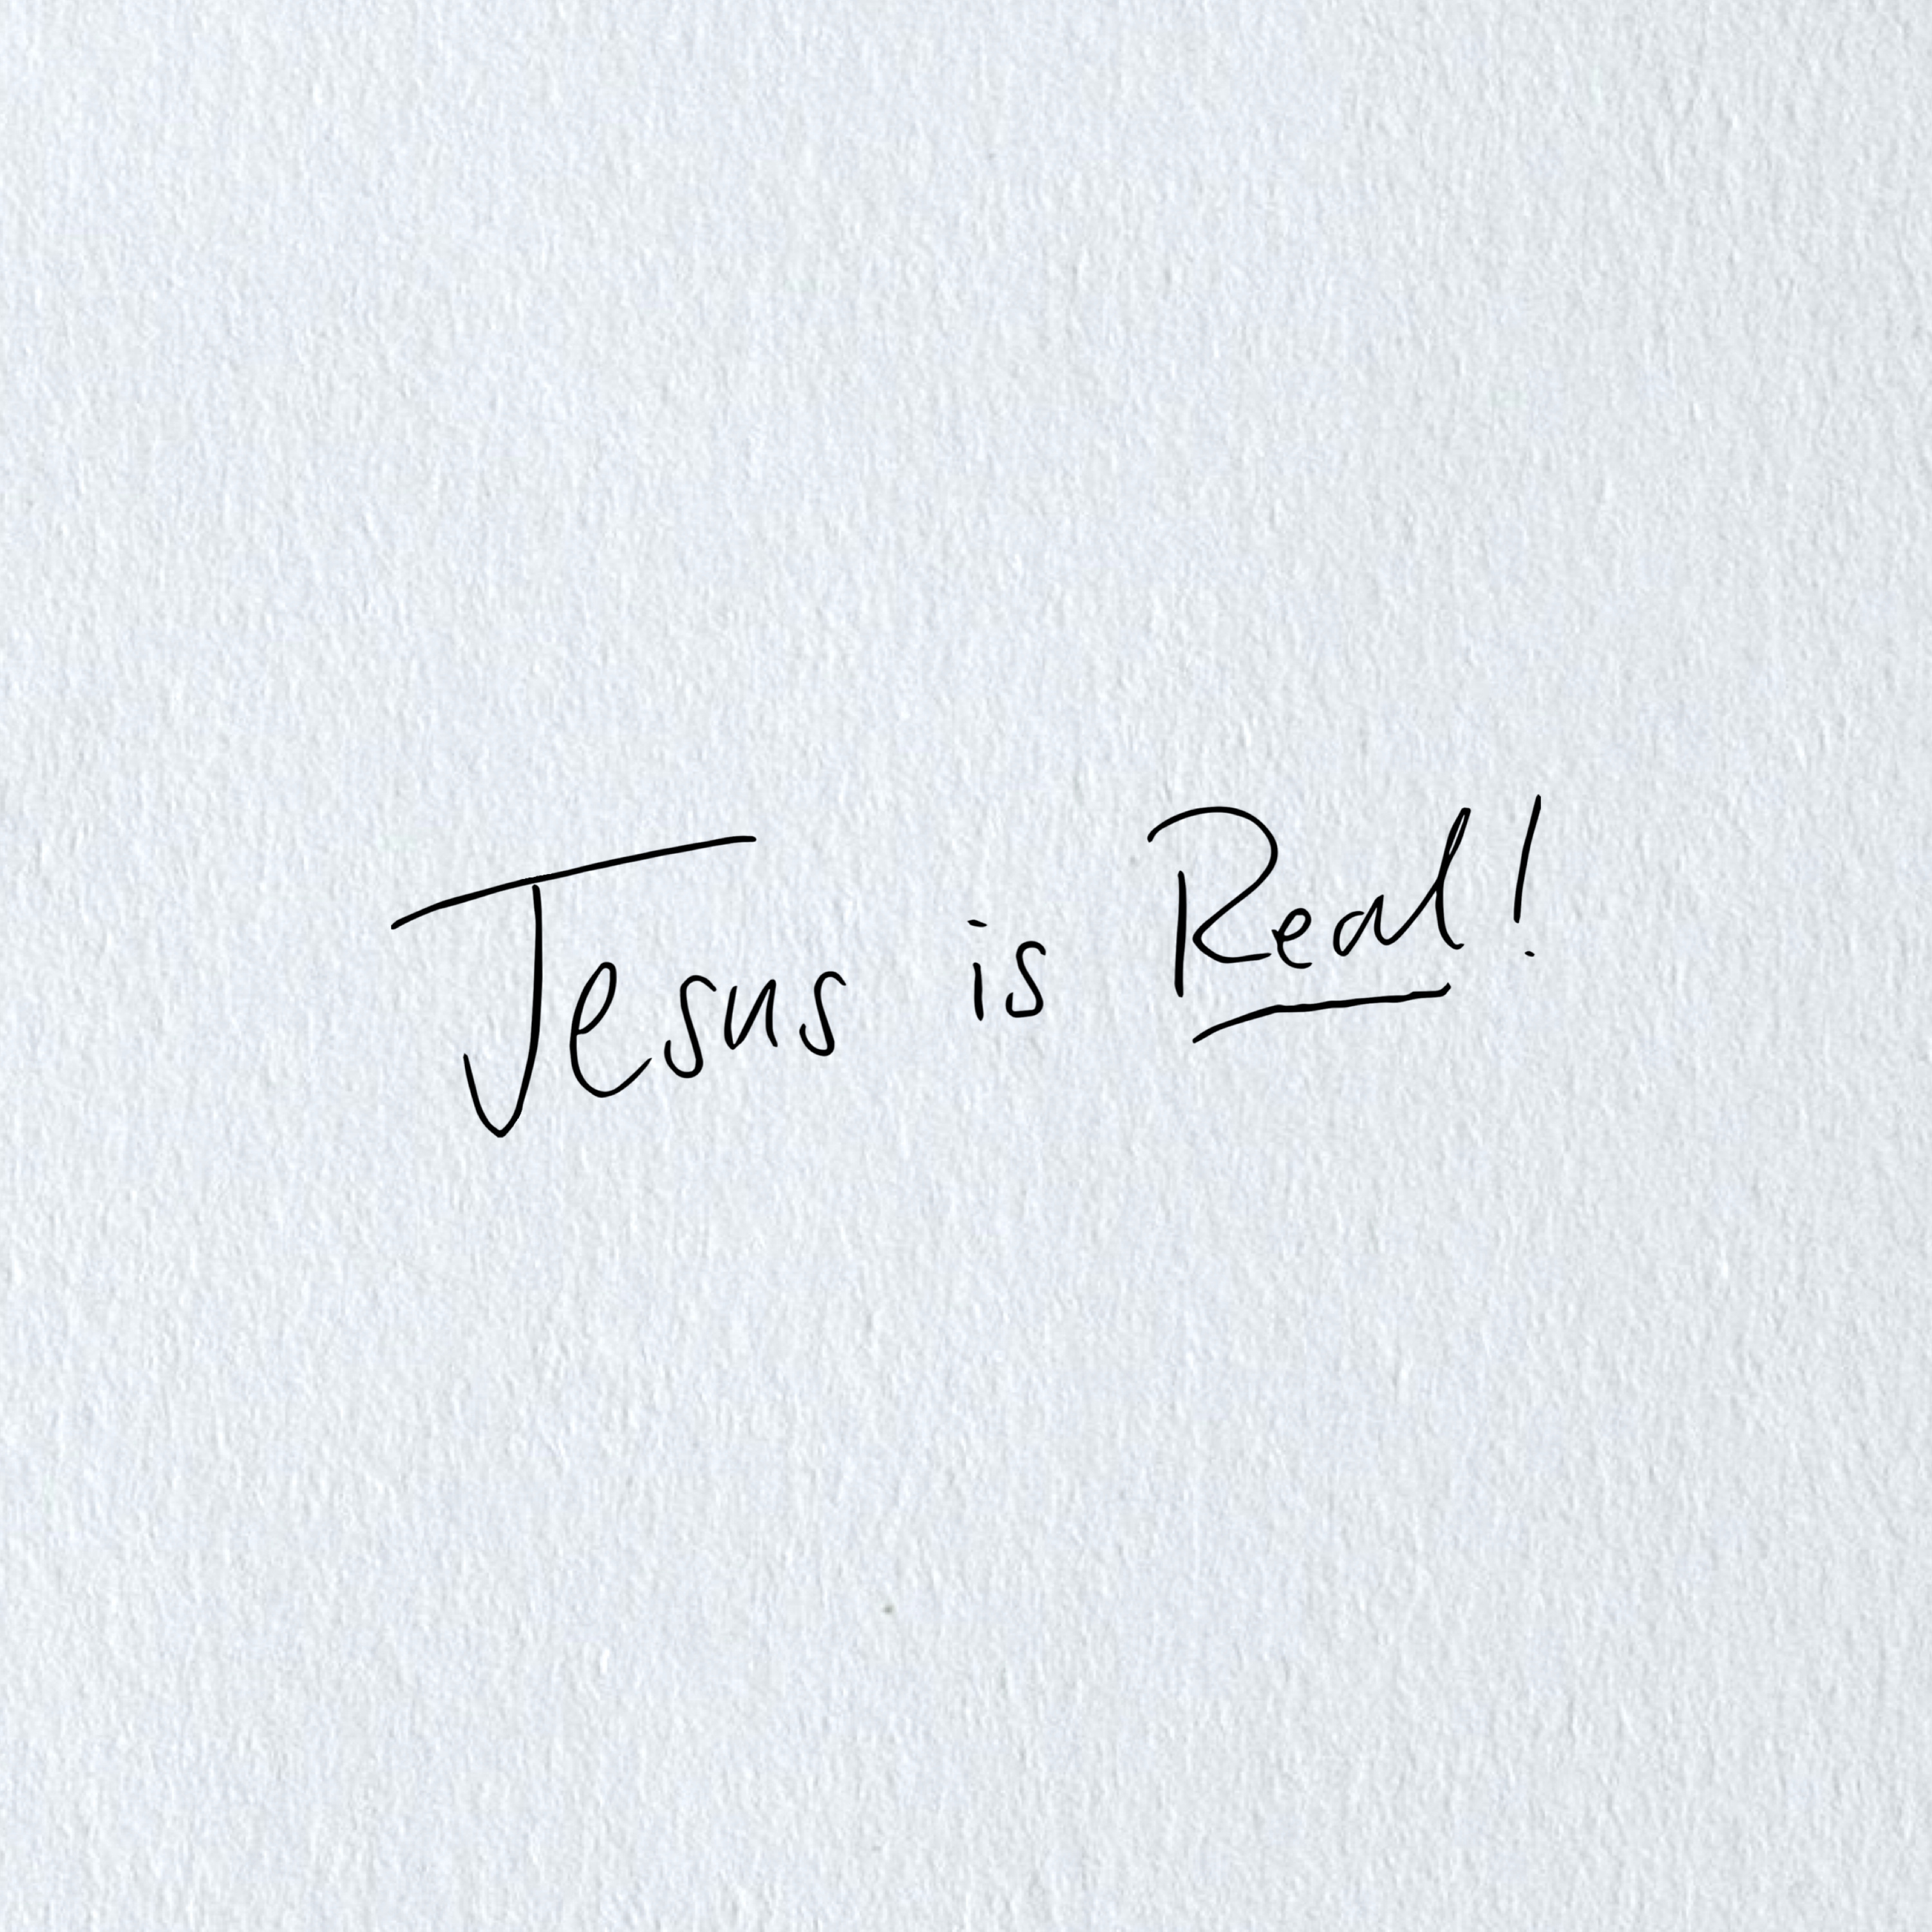 Jesus is Real!